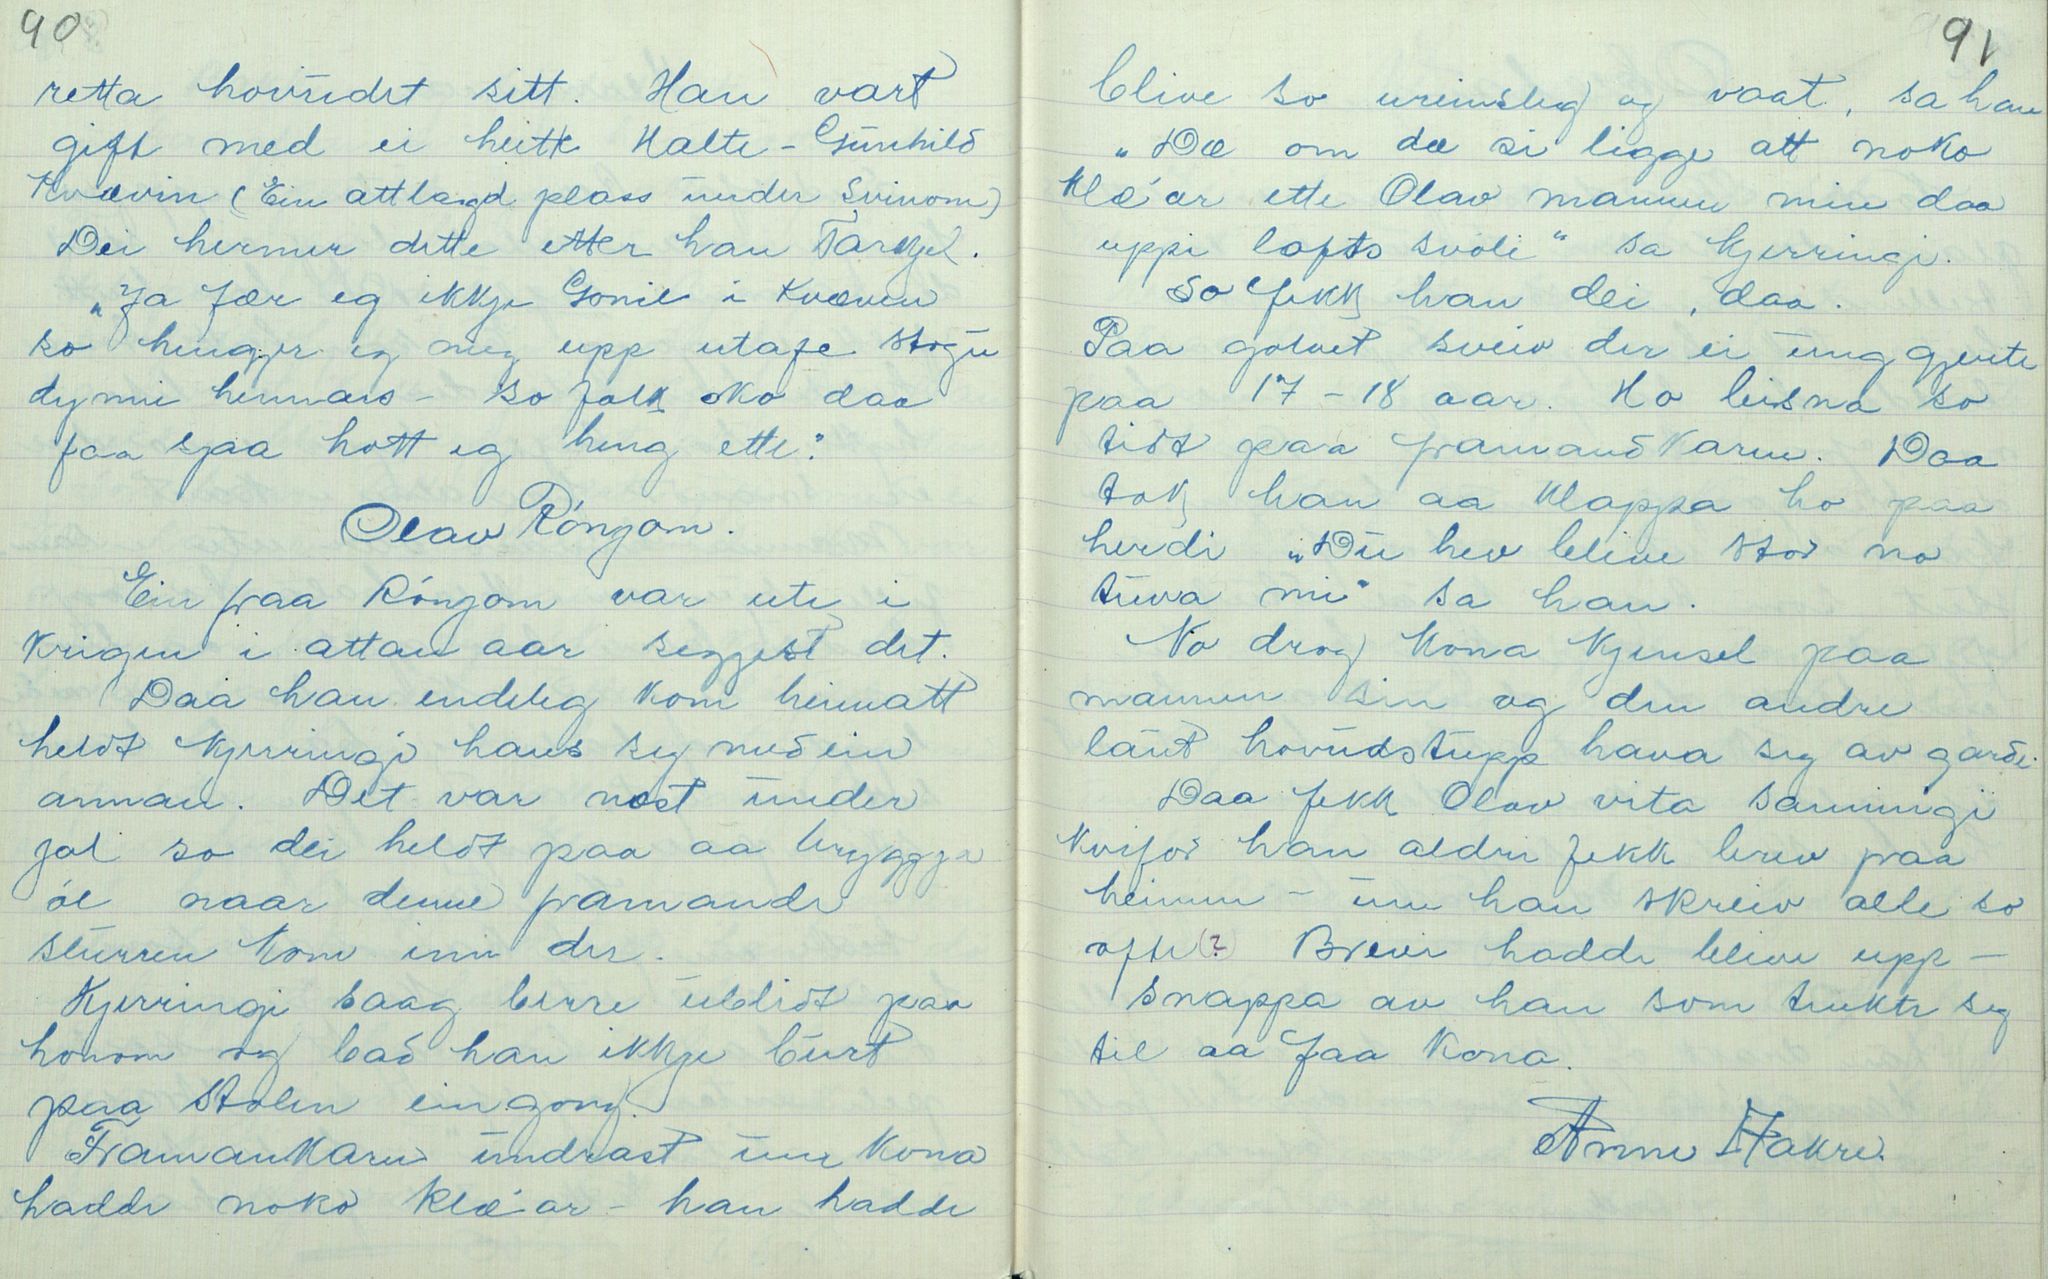 90
retta hovudet sitt. Han vart
gift med ei heitte Halte-Gunhild
Kvævin (Ein attlagd plass under Svinom)
Dei hermer dette etter han Tarkjel.
"Ja fær eg ikkje Gonil i Kvæven
so hengjer eg meg upp utafe stogu
dynne hennars - so folk sko daa
faa sjaa hott eg heng ette."
Olav Róngom.
Ein fraa Róngom var ute i
krigen i attan aar seggjest det.
Daa han endeleg kom heimatt
heldt kjerringi hans seg med ein
annan. Det var nest under
jol so dei heldt paa aa bryggja
öl naar denne framande
sturren kom inn der.
Kjerringi saag berre ublidt paa
honom og bad han ikkje burt
paa stolen ein gong.
Framankaren undrast um kona
hadde noko klæ'ar - han hadde
91
blive so ureinsleg og vaat, sa han
"Dæ om dæ si ligge att noko
klæ'ar ette Olav mannen min daa
uppi lofts svóli" sa kjerringi.
So fekk han dei, daa.
Paa golvet sveiv der ei ung gjente
paa 17-18 aar. Ho leisna so
tidt paa framandkaren. Daa
tok han aa klappa ho paa
herdi "Du hev blive stor no
tuva mi" sa han.
No drog kona kjensel paa
mannen sin og den andre
laut hovudstupp hava seg av garde.
Daa fekk Olav vita sanningi
kvifor han aldri fekk brev fraa
heimen - um han skreiv alle so
ofte(?) Brevi hadde blive upp-
snappa av han som tenkte seg
til aa faa kona.
Anne Hakre.